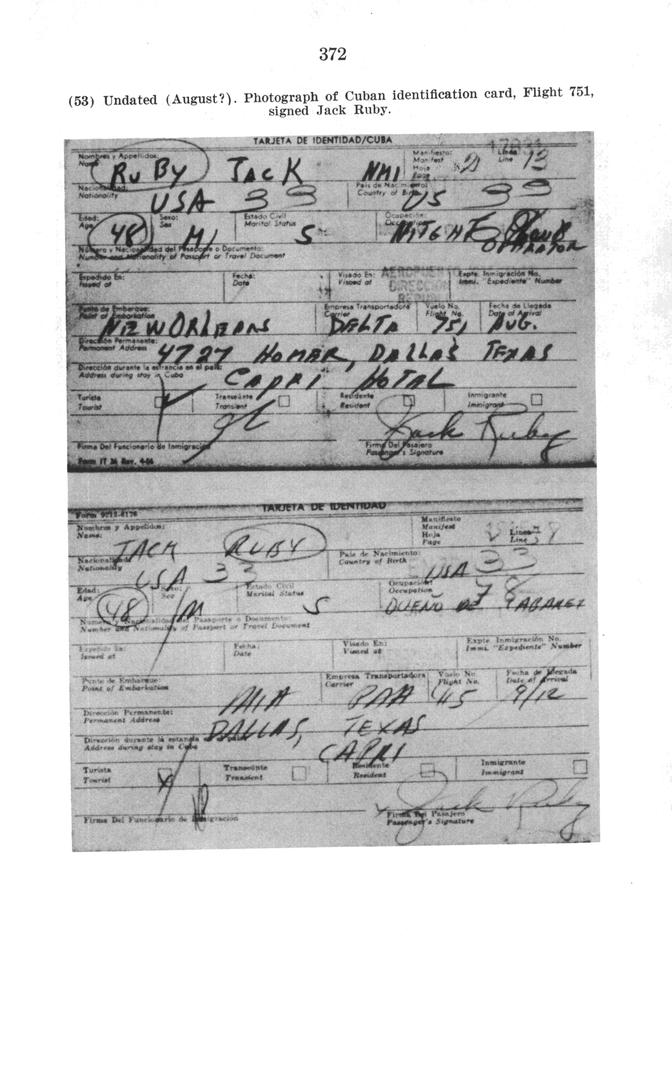 372
(53) Undated (August?). Photograph of Cuban identification card, Flight 751,
signed Jack Ruby.
TARJETA DE IDENTIDAD/CUBA
Nombres y Appellidos:
Name
RUBY JACK NMI
Manifiesto:
Manifest
Hoja
Page
Line
13
Nacionalidad:
Nationality
USA 33
País de Nacimiento:
Country of Birth
US 33
Edad:
Age
48
Sexo:
Sex
M
Estado Civil
Marital Status
S
Ocupación:
NITGHT
OPERATOR
Número y Nacionalidad del Pasaporte o Documento:
Number and Nationality of Passport or Travel Document
Expedido En:
Issued at
Fecha:
Date
Visado En:
Visaed at
AEROPUERTO
DIRECCION
Expte. Inmigración No.
Immi. "Expediente" Number
Punto de Embarque:
Point of Embarkation
NEW ORLEANS
Empresa Transportadora
Carrier
DELTA
Vuelo No.
Flight No.
751
Fecha de Llegada
Date of Arrival
AUG.
Dirección Permanente:
Permanent Address
4727 HOMER, DALLAS TEXAS
Dirección durante la estancia en el país:
Address during stay in Cuba
CAPRI HOTAL
Turista
Tourist
Transeúnte
Transient
Residente
Resident
Inmigrante
Immigrant
Jack Ruby
Firma Del Funcionario de Inmigración
Firma Del Pasajero
Passenger's Signature
Form IT 26 Rev. 4-56
Form 9212-8176
TARJETA DE IDENTIDAD
Nombres y Appellidos:
Name:
JACK RUBY
Manifiesto
Manifest
Hoja
Page
Linea
Line
Nacionalidad
Nationality
USA 33
País de Nacimiento:
Country of Birth
USA 33
Edad:
Age
48
Sexo:
Sex
M
Estado Civil
Marital Status
S
Ocupación
Occupation
78
DUEÑO DE CABARET
Número y Nacionalidad del Pasaporte o Documento:
Number and Nationality of Passport or Travel Document
Expedido En:
Issued at
Fecha:
Date
Visado En:
Visaed at
Expte. Inmigración No.
Immi. "Expediente" Number
Punto de Embarque:
Point of Embarkation
MIA
Empresa Transportadora
Carrier
PAA
Vuelo No.
Flight No.
415
Fecha de Llegada
Date of Arrival
9/12
Dirección Permanente:
Permanent Address
DALLAS, TEXAS
Dirección durante la estancia
Address during stay in Cuba
CAPRI
Turista
Tourist
X
Transeúnte
Transient
Residente
Resident
Inmigrante
Immigrant
Jack Ruby
Firma Del Funcionario de Inmigración
Firma Del Pasajero
Passenger's Signature